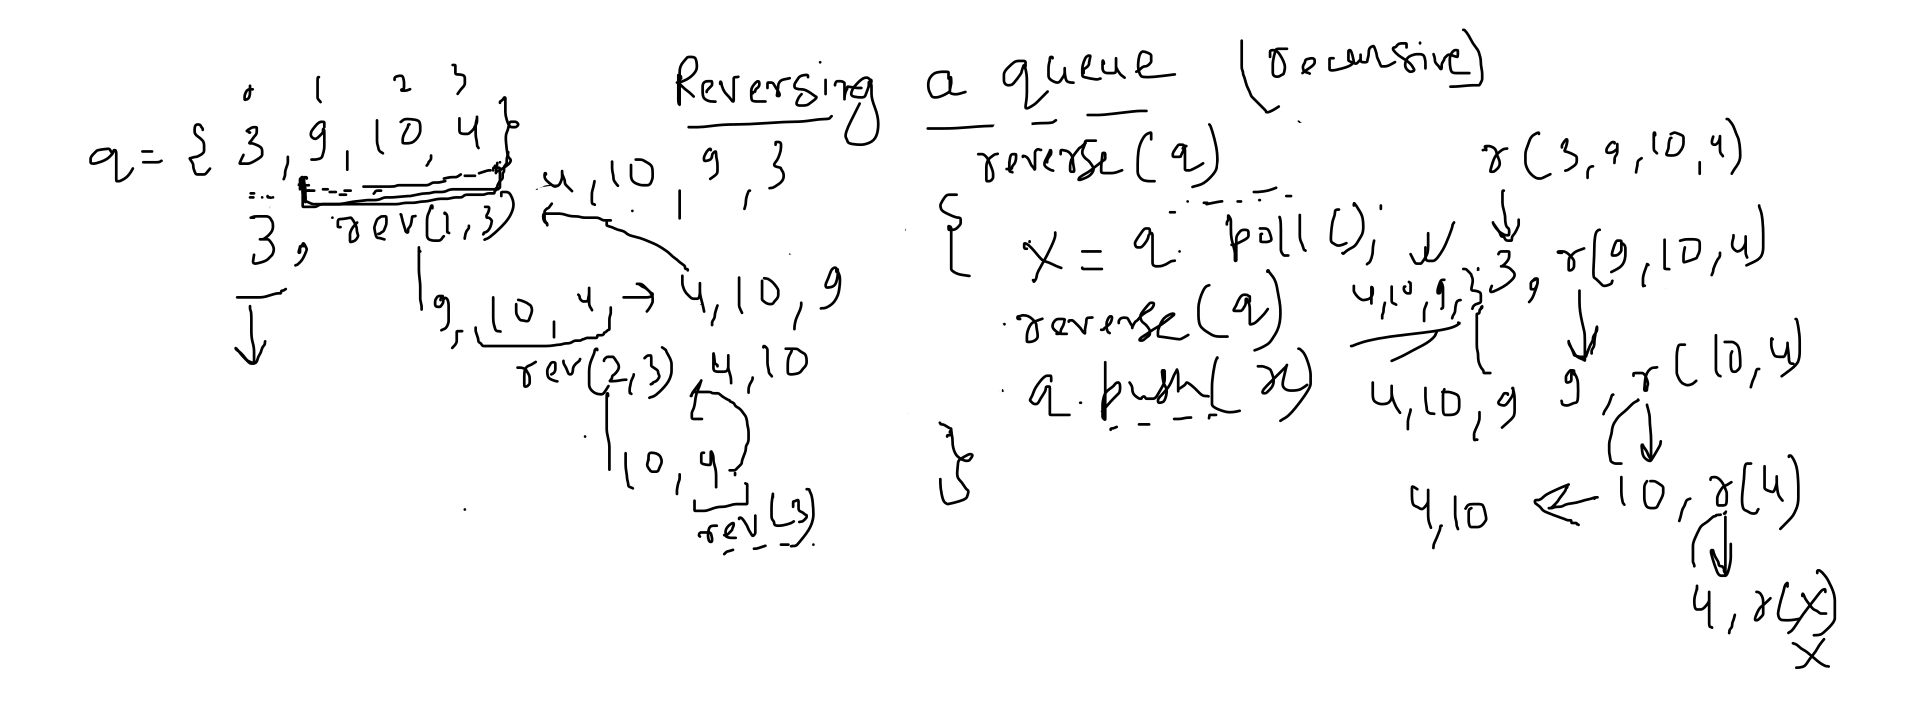 Reversing a queue (recursive)
0 1 2 3
q = { 3, 9, 10, 4 }
3, rev(1,3)
4, 10, 9, 3
9, 10, 4, → 4, 10, 9
rev(2,3) 4, 10
10, 4
rev(3)
reverse(q)
{
x = q. poll();
reverse(q)
q. push(x)
}
r(3, 9, 10, 4)
3, r(9, 10, 4)
4, 10, 9, 3
9, r(10, 4)
4, 10, 9
10, r(4)
4, 10 ←
4, r(x)
x